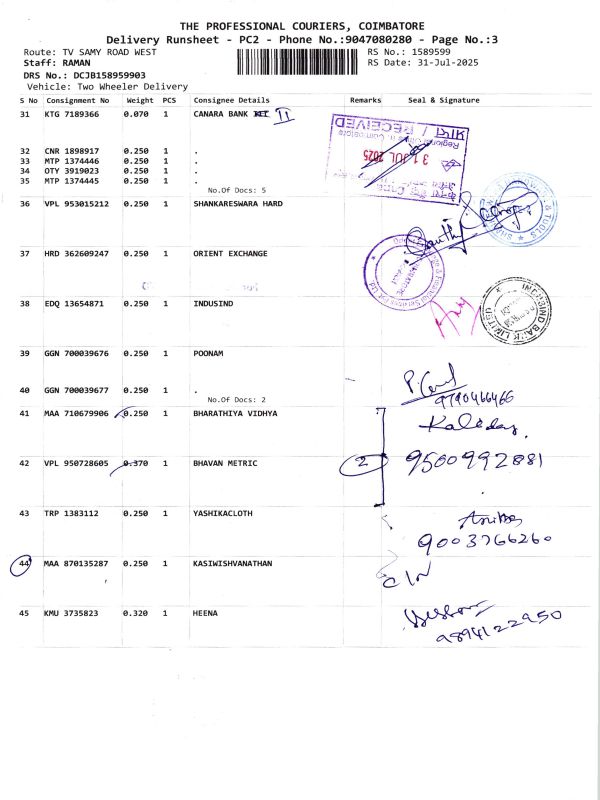 THE PROFESSIONAL COURIERS, COIMBATORE
Delivery Runsheet - PC2 - Phone No.:9047080280 - Page No.:3
Route: TV SAMY ROAD WEST RS No.: 1589599
Staff: RAMAN RS Date: 31-Jul-2025
DRS No.: DCJB158959903
Vehicle: Two Wheeler Delivery
S No Consignment No Weight PCS Consignee Details Remarks Seal & Signature
31 KTG 7189366 0.070 1 CANARA BANK II
RECEIVED
31 JUL 2025
32 CNR 1898917 0.250 1 .
33 MTP 1374446 0.250 1 .
34 OTY 3919023 0.250 1 .
35 MTP 1374445 0.250 1 .
No.Of Docs: 5
36 VPL 953015212 0.250 1 SHANKARESWARA HARD
& TOOLS
37 HRD 362609247 0.250 1 ORIENT EXCHANGE
38 EDQ 13654871 0.250 1 INDUSIND
INDUSIND BANK LIMITED
39 GGN 700039676 0.250 1 POONAM
40 GGN 700039677 0.250 1 .
No.Of Docs: 2
9790466466
41 MAA 710679906 0.250 1 BHARATHIYA VIDHYA
42 VPL 950728605 0.370 1 BHAVAN METRIC 2 9500992881
43 TRP 1383112 0.250 1 YASHIKACLOTH
9003766260
44 MAA 870135287 0.250 1 KASIWISHVANATHAN
45 KMU 3735823 0.320 1 HEENA
9894122950